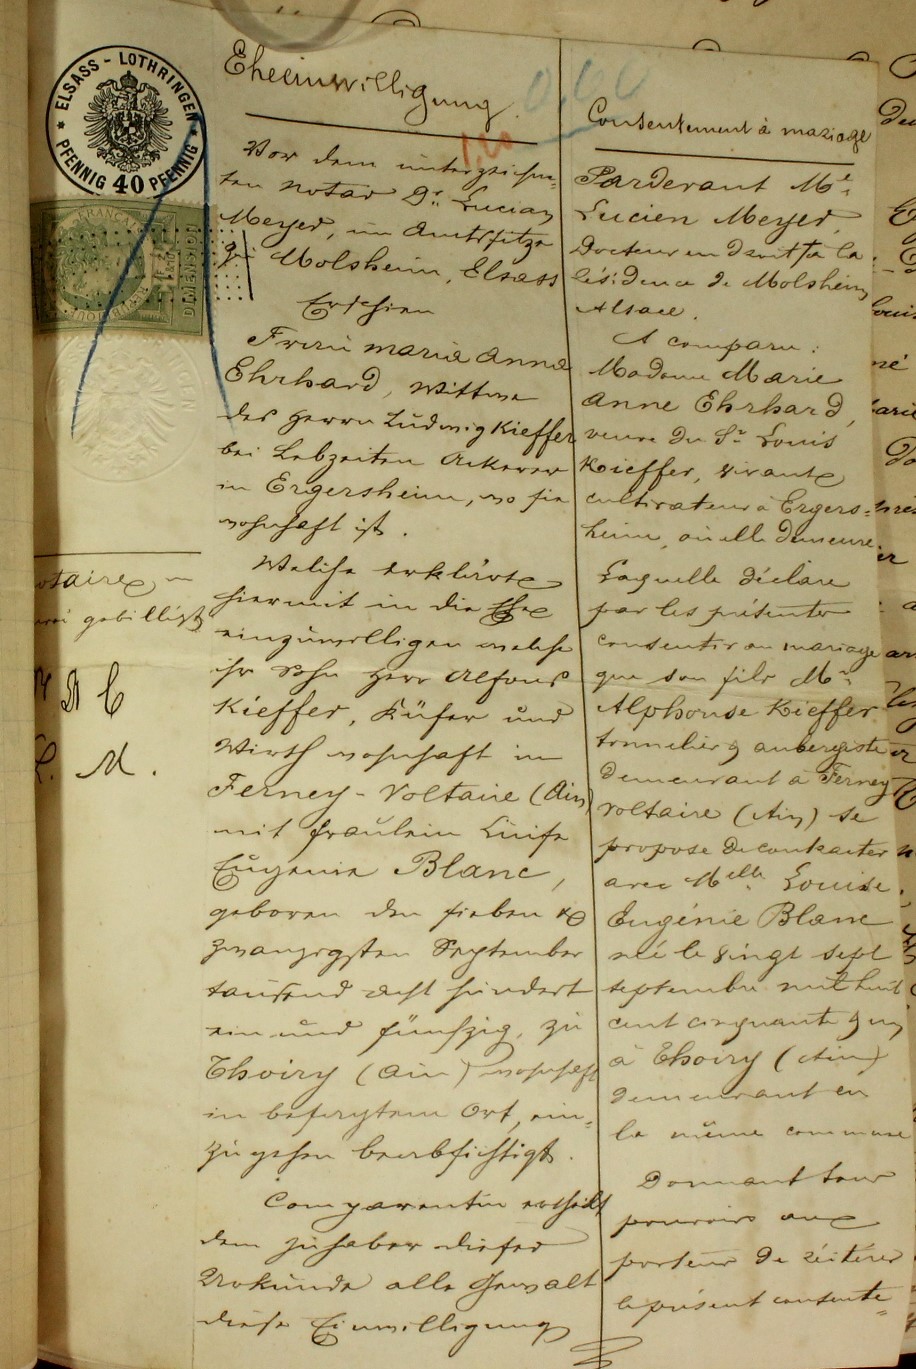 ELSASS - LOTHRINGEN
PFENNIG 40 PFENNIG
DIMENSION
Eheeinwilligung
0,60
1,20
Vor dem unterzeichne-
ten Notar Dr. Lucian
Meyer, im Amtssitze
zu Molsheim, Elsass
Erschien
Frau Maria Anna
Ehrhard, Wittwe
des Herrn Ludwig Kieffer
bei Lebzeiten Ackerer
in Ergersheim, wo sie
wohnhaft ist.
Welche erklärte
hiermit in die Ehe
einzuwilligen welche
ihr Sohn Herr Alfons
Kieffer, Küfer und
Wirth wohnhaft in
Ferney-Voltaire (Ain)
mit Fraülein Luise
Eugenie Blanc,
geboren den sieben &
zwanzigsten September
tausend acht hundert
ein und fünfzig, zu
Thoiry (Ain) wohnhaft
in besagtem Ort, ein-
zugehen beabsichtigt.
Comparentin ertheilt
dem Inhaber dieser
Urkunde alle Gewalt
diese Einwilligung
otaire
gebilligt
L. M.
Consentement à mariage
Pardevant Me.
Lucien Meyer,
Docteur en droit à la
résidence de Molsheim
Alsace.
A comparu:
Madame Marie
Anne Ehrhard,
veuve du Sr. Louis
Kieffer, vivant
cultivateur à Ergers=
heim, où elle demeure.
Laquelle déclare
par les présentes
consentir au mariage
que son fils Mr.
Alphonse Kieffer
tonnelier & aubergiste
demeurant à Ferney
Voltaire (Ain) se
propose de contracter
avec Melle. Louise
Eugénie Blanc
née le vingt sept
septembre mil huit
cent cinquante & un
à Thoiry (Ain)
demeurant en
la même commune
Donnant tous
pouvoirs aux
porteur de réitérer
le présent consente=